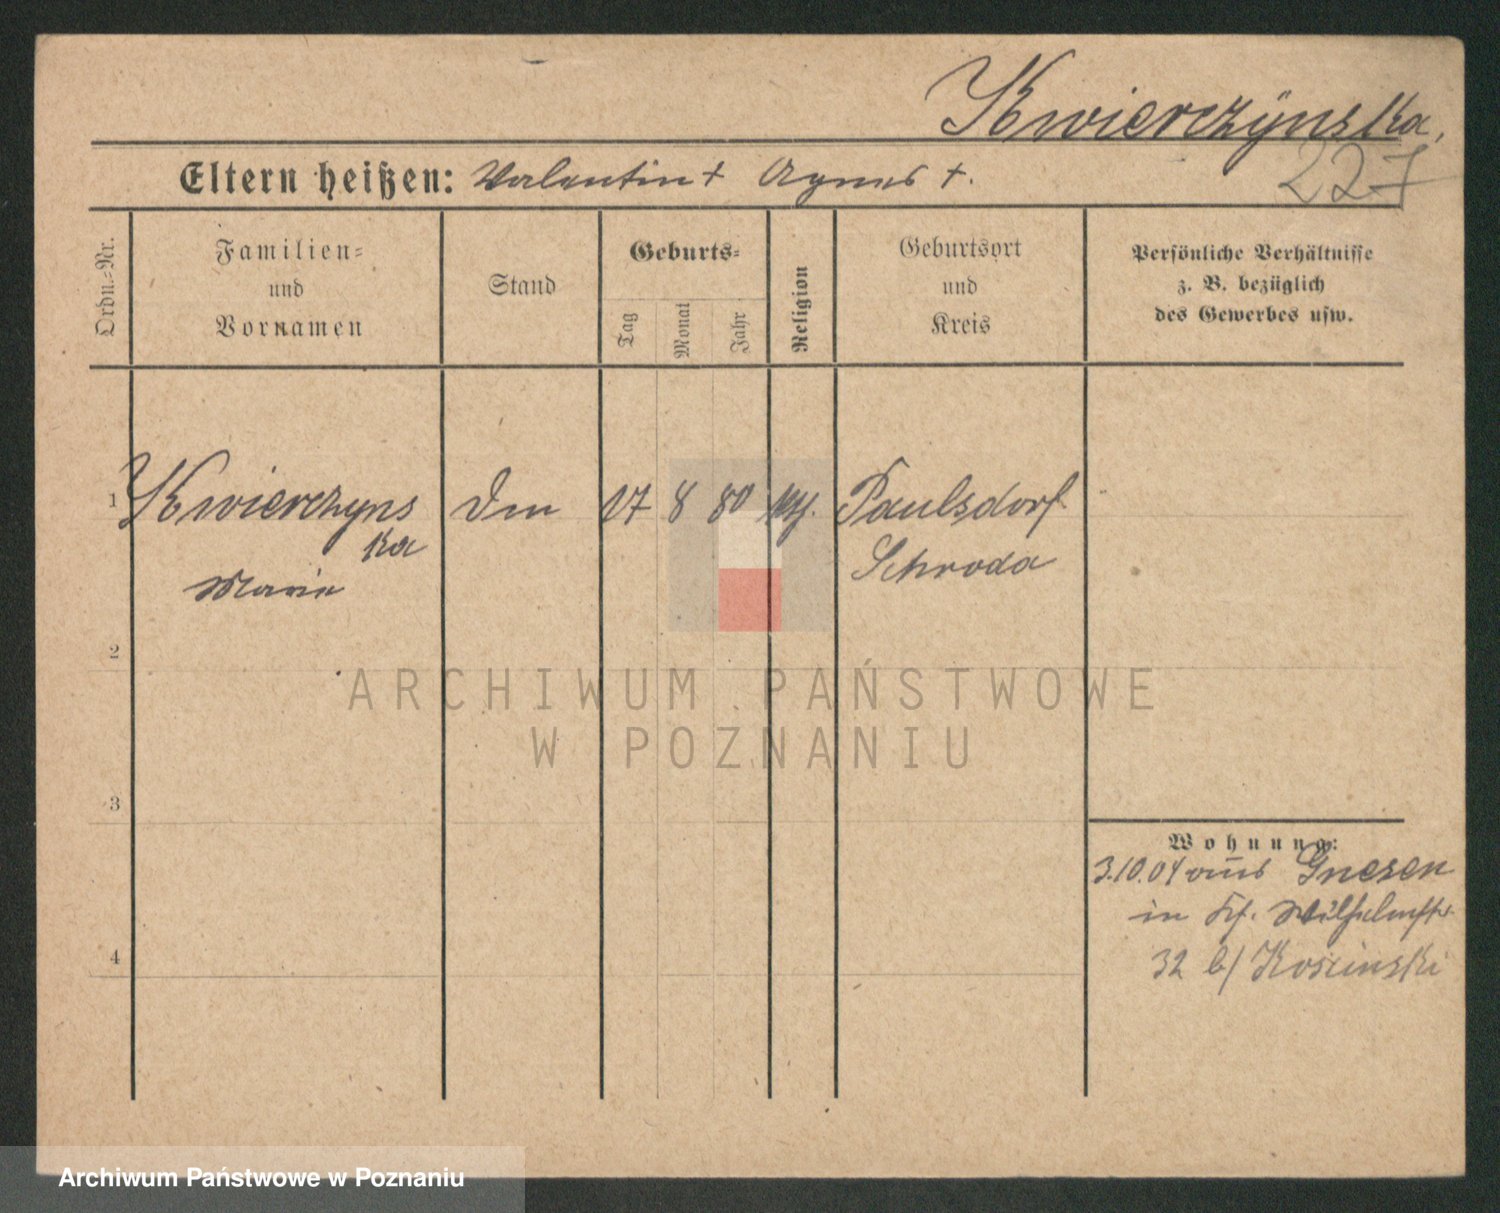 Kwierczynska,
227
Eltern heißen: Valentin † Agnes †.
Ordn.-Nr.
Familien-
und
Vornamen
Stand
Geburts-
Tag
Monat
Jahr
Religion
Geburtsort
und
Kreis
Persönliche Verhältnisse
z. B. bezüglich
des Gewerbes usw.
1 Kwierczyns 17 8 80 kth. Paulsdorf
ka Schroda
Marie
2
3
4
Wohnung:
3.10.04 aus Gnesen
in Wilhelmstr.
32 b/ Koscinski
ARCHIWUM PAŃSTWOWE
W POZNANIU
Archiwum Państwowe w Poznaniu